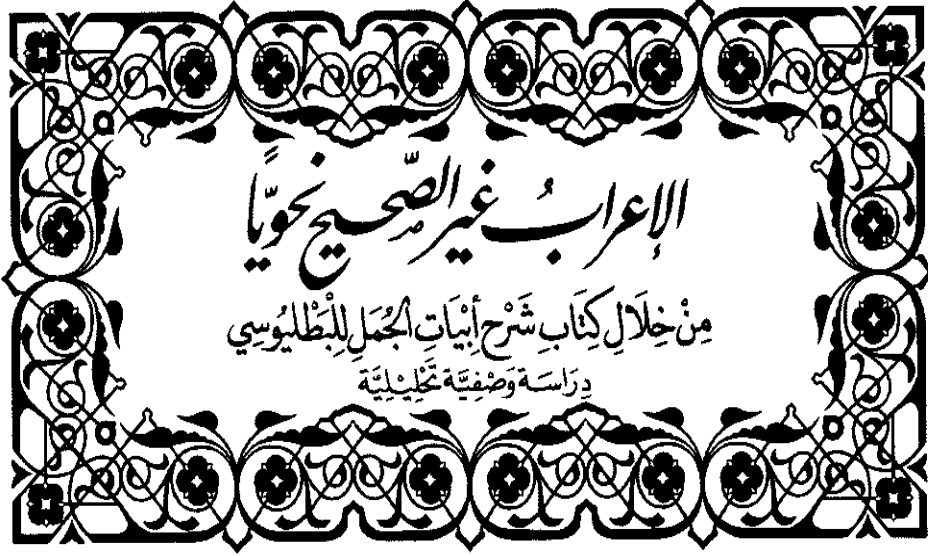 الإعرابُ غير الصّحيح نحويًّا
مِنْ خِلَالِ كِتَابِ شَرْحِ أَبْيَاتِ الجُمَلِ لِلْبَطْلْيُوسِي
دِرَاسَة وَصْفِيَّة تَحْلِيْلِيَّة